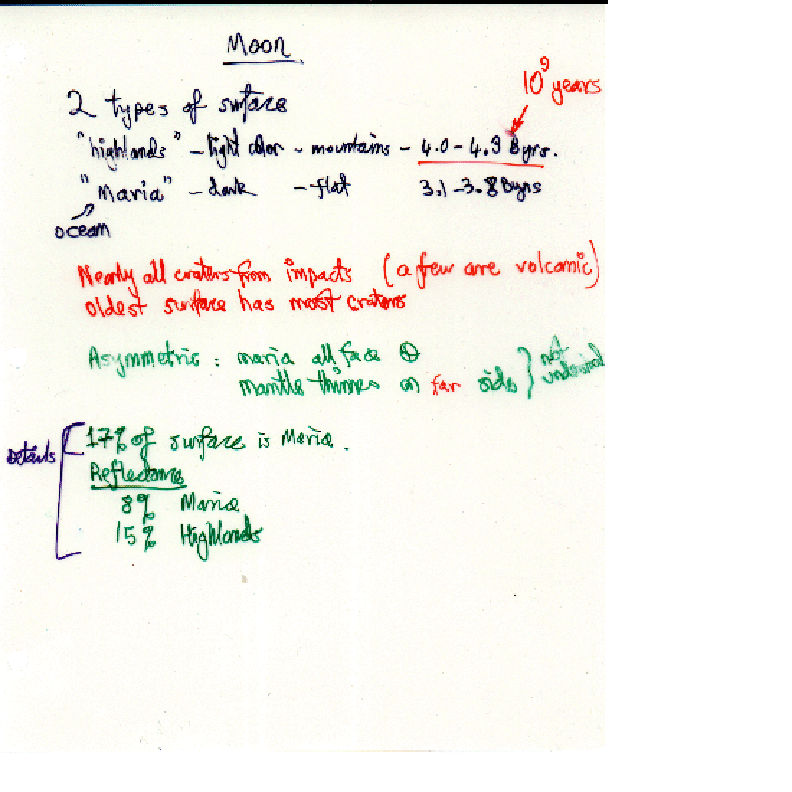 Moon
10⁹ years
2 types of surface
"highlands" – light color – mountains – 4.0 - 4.3 Byrs.
"Maria" – dark – flat 3.1 - 3.8 Byrs
ocean
Nearly all craters from impacts (a few are volcanic)
oldest surface has most craters
Asymmetric : maria all face ⊕
mantle thinnes on far side } not
Details [ 17% of surface is Maria.
Reflectance
8% Maria
15% Highlands